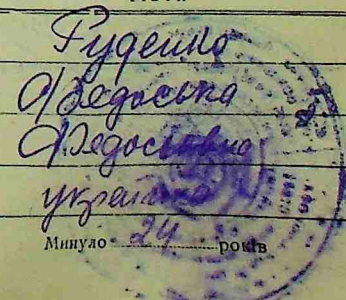 Руденко
Федоська
Федосіївна
українка
Минуло 24 років